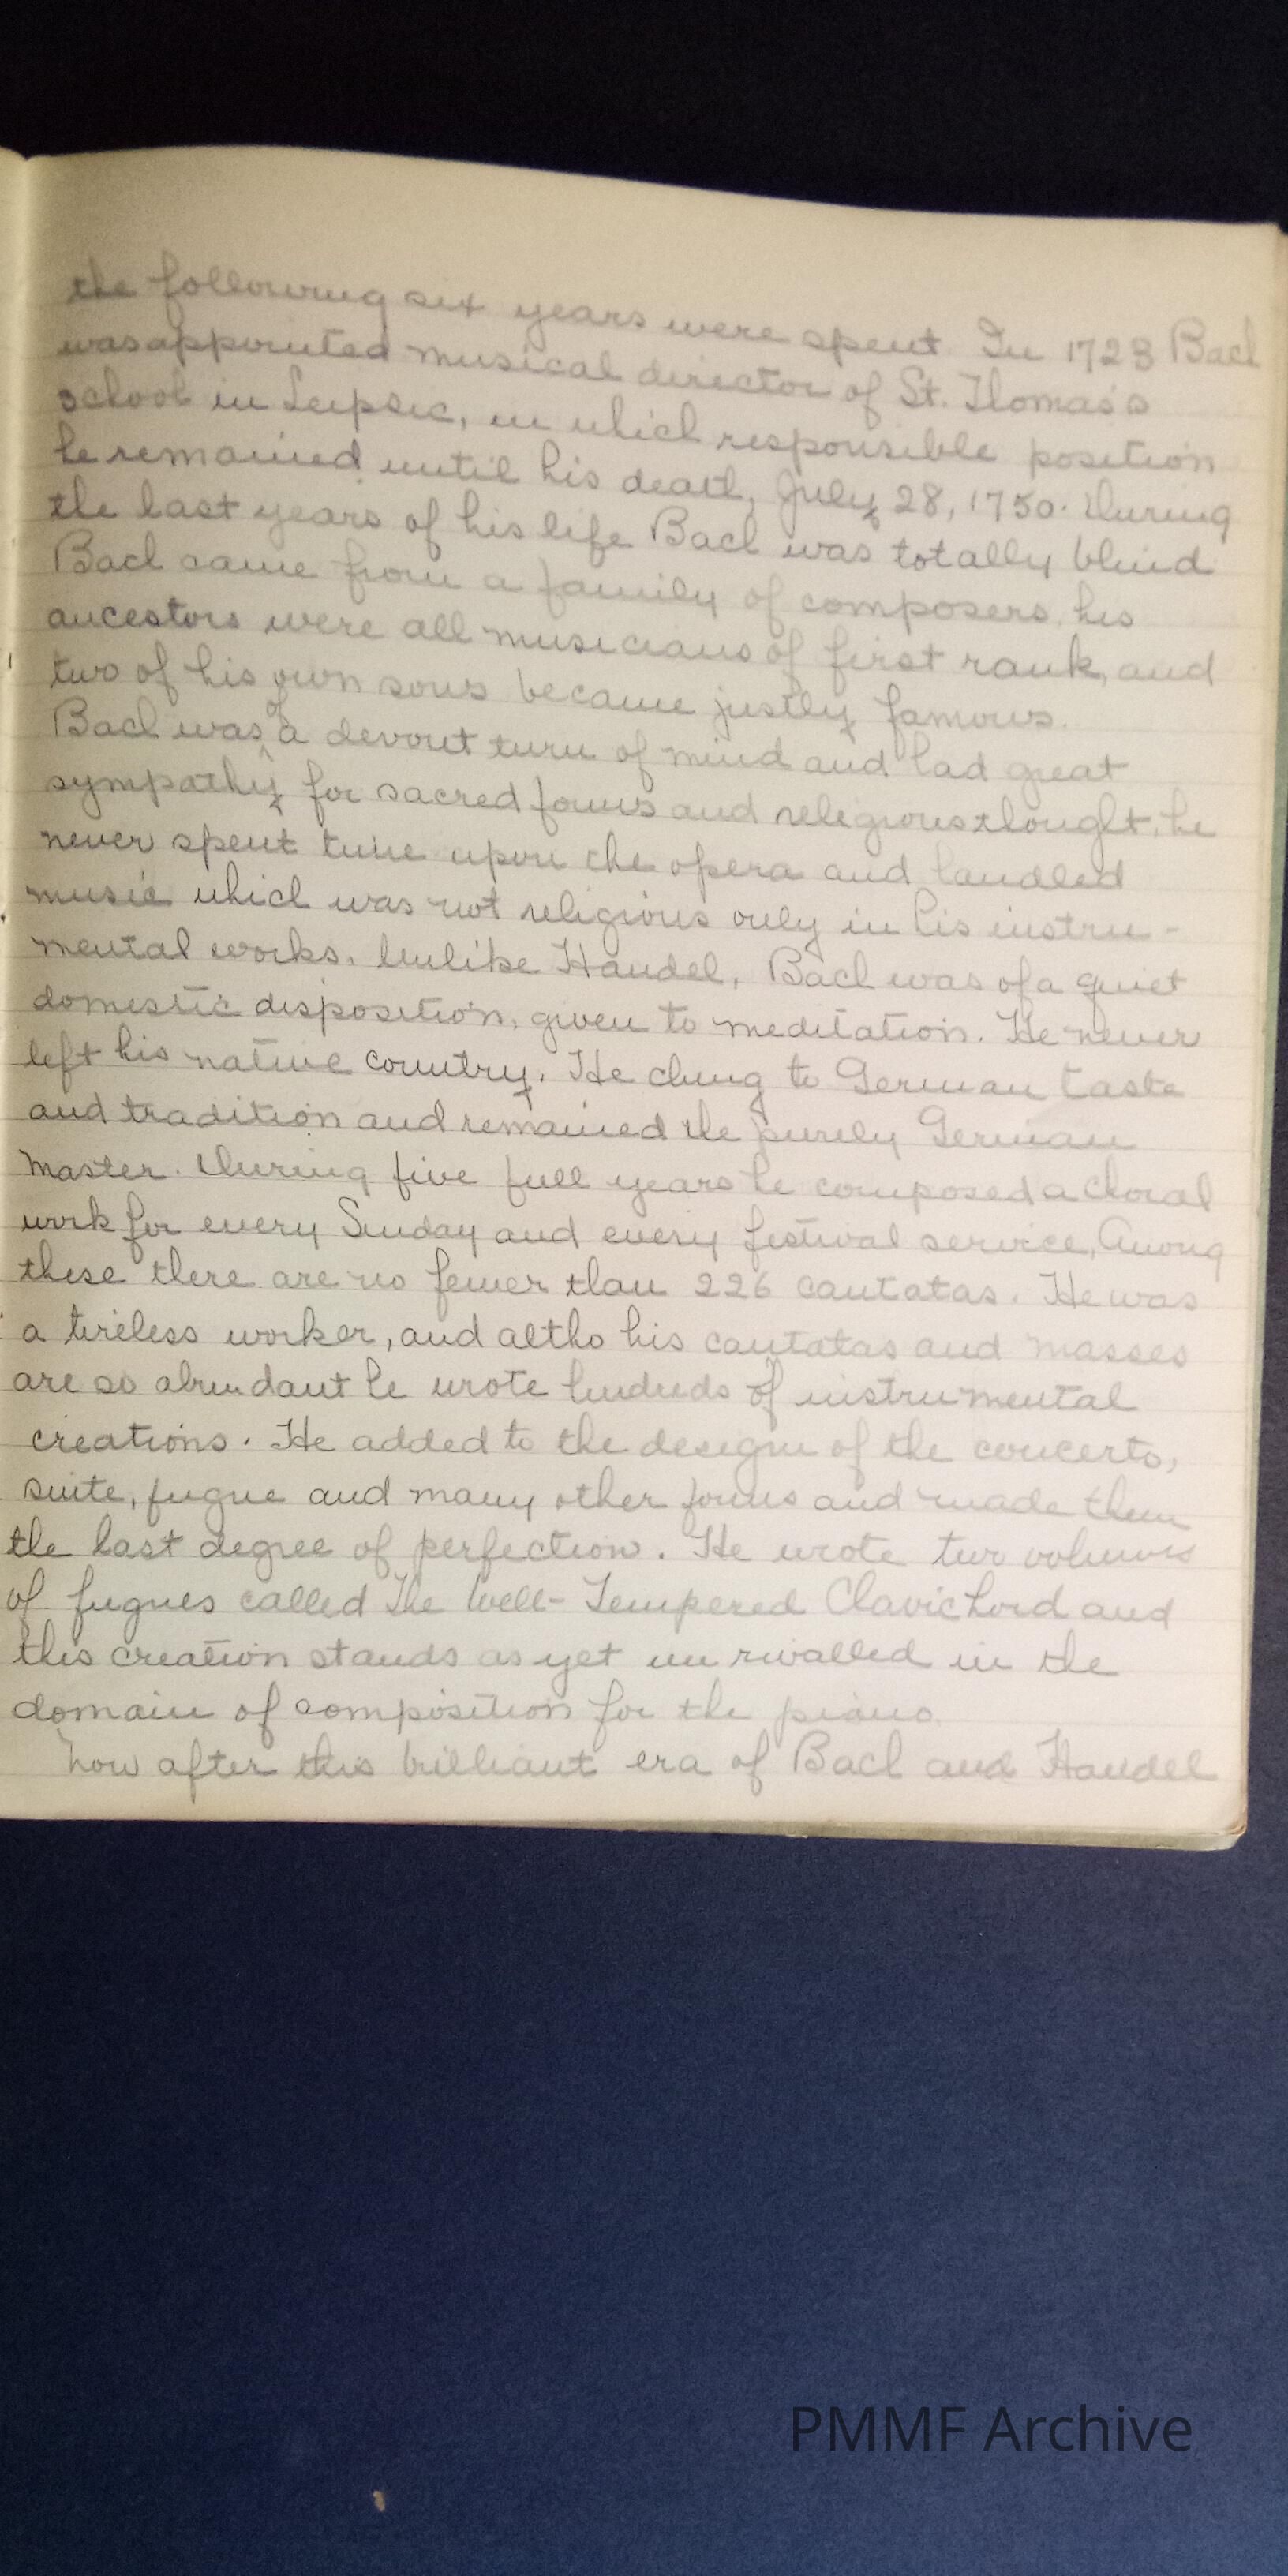 the following six years were spent. In 1723 Bach
was appointed musical director of St. Thomas's
school in Leipsic, in which responsible position
he remained until his death, July 28, 1750. During
the last years of his life Bach was totally blind
Bach came from a family of composers, his
ancestors were all musicians of first rank, and
two of his own sons became justly famous.
Bach was of a devout turn of mind and had great
sympathy for sacred forms and religious thought, he
never spent time upon the opera and handled
music which was not religious only in his instru-
mental works. Unlike Handel, Bach was of a quiet
domestic disposition, given to meditation. He never
left his native country. He clung to German taste
and tradition and remained the purely German
master. During five full years he composed a choral
work for every Sunday and every festival service, Among
these there are no fewer than 226 cantatas. He was
a tireless worker, and altho his cantatas and masses
are so abundant he wrote hundreds of instrumental
creations. He added to the designe of the concerto,
suite, fugue and many other forms and made them
the last degree of perfection. He wrote two volumes
of fugues called The Well-Tempered Clavichord and
this creation stands as yet unrivalled in the
domain of composition for the piano.
Now after this brilliant era of Bach and Handel
PMMF Archive